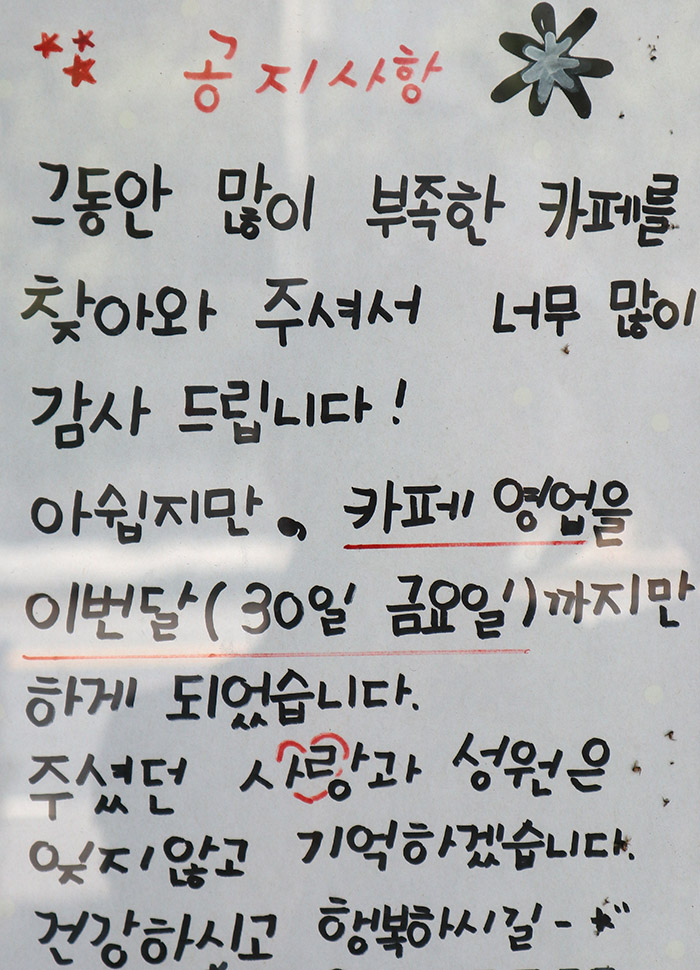 공지사항
그동안 많이 부족한 카페를
찾아와 주셔서 너무 많이
감사 드립니다!
아쉽지만, 카페 영업을
이번달(30일 금요일)까지만
하게 되었습니다.
주셨던 사랑과 성원은
잊지않고 기억하겠습니다.
건강하시고 행복하시길-